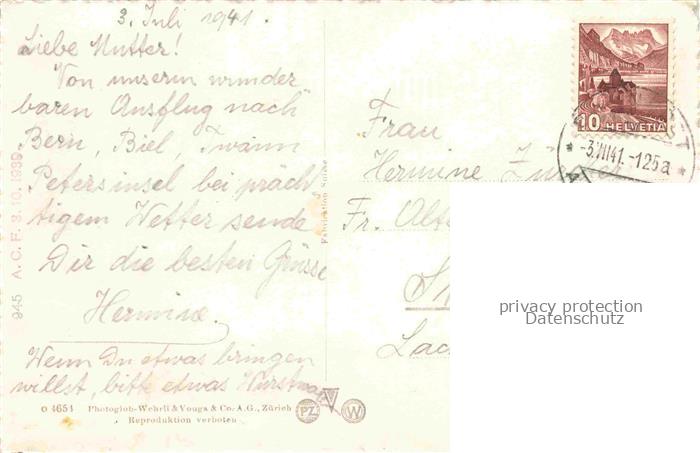 3. Juli 1941.
Liebe Mutter!
Von unserm wunder
baren Ausflug nach
Bern, Biel, Twann
Petersinsel bei präch
tigem Wetter sende
Dir die besten Grüsse
Hermine.
Wenn Du etwas bringen
willst, bitte etwas
945 A. C. F. 3. 10. 1939
O 4651 Photoglob-Wehrli & Vouga & Co. A.G., Zürich
Reproduktion verboten
PZ V W
Fabrication Suisse
10 HELVETIA
-3.VII41.-125a
Frau
Hermine
Fr. Alt
privacy protection
Datenschutz